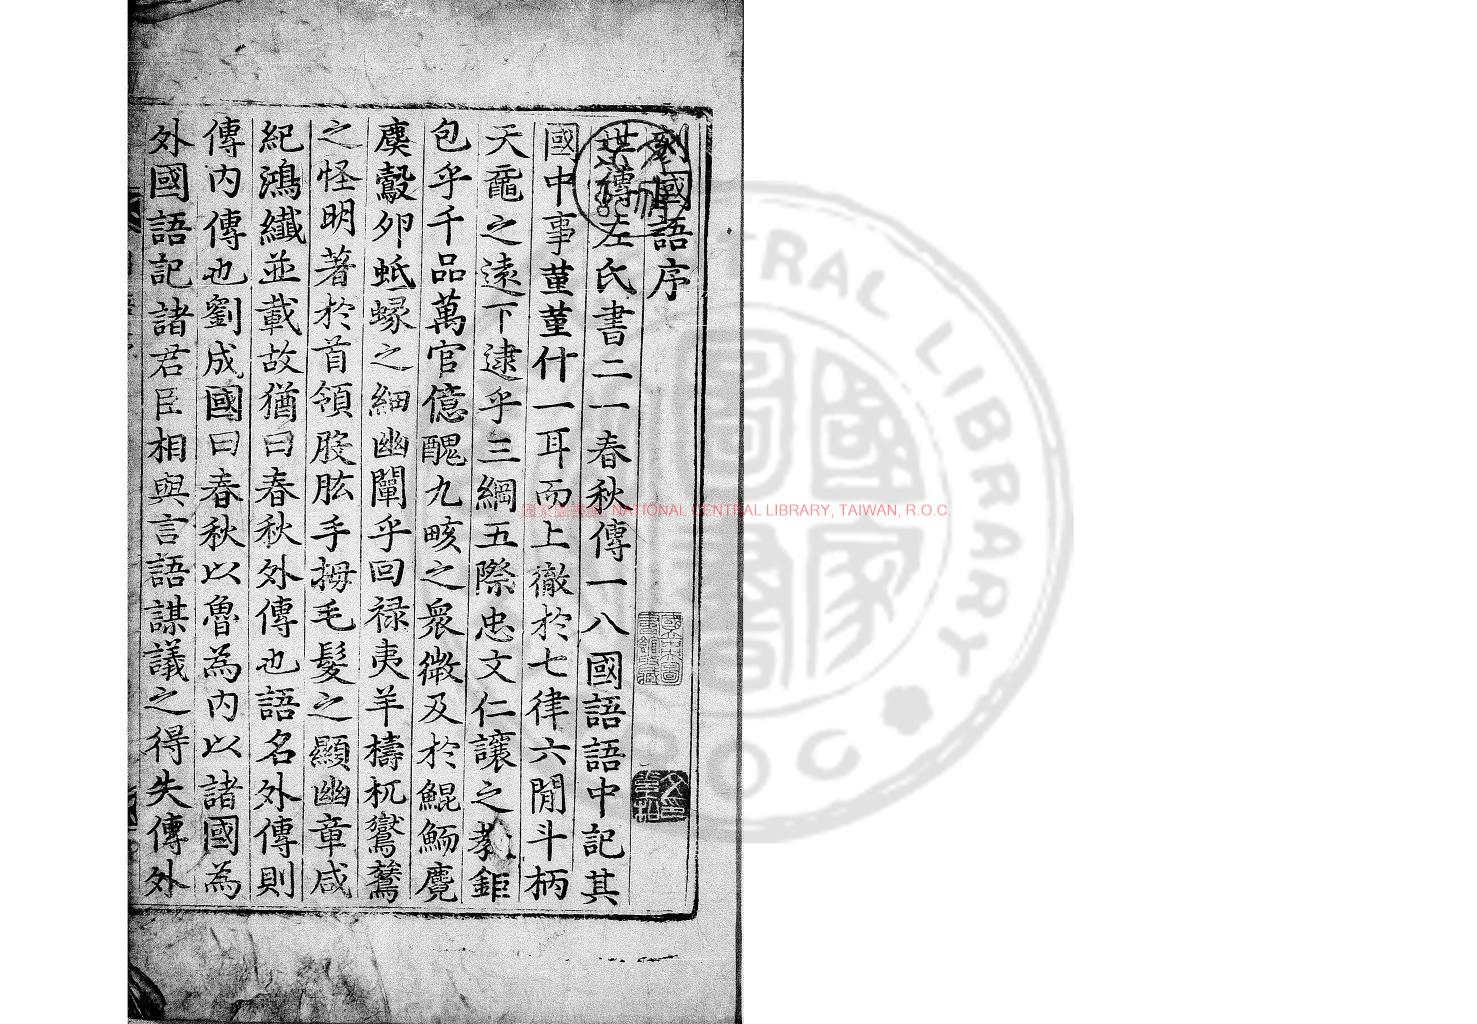 刻國語序
世傳左氏書二一春秋傳一八國語語中記其
國中事堇堇什一耳而上徹於七律六閒斗柄
天黿之遠下逮乎三綱五際忠文仁讓之教鉅
包乎千品萬官億醜九畡之衆微及於鯤鮞麑
麌鷇卵蚳蝝之細幽闡乎回禄夷羊檮杌鸑鷟
之怪明著於首領股肱手拇毛髮之顯幽章咸
紀鴻纖並載故猶曰春秋外傳也語名外傳則
傳內傳也劉成國曰春秋以魯為內以諸國為
外國語記諸君臣相與言語謀議之得失傳外
國家圖書館 NATIONAL CENTRAL LIBRARY, TAIWAN, R.O.C
CENTRAL LIBRARY ROC
國家圖書
國立中央圖書館收藏